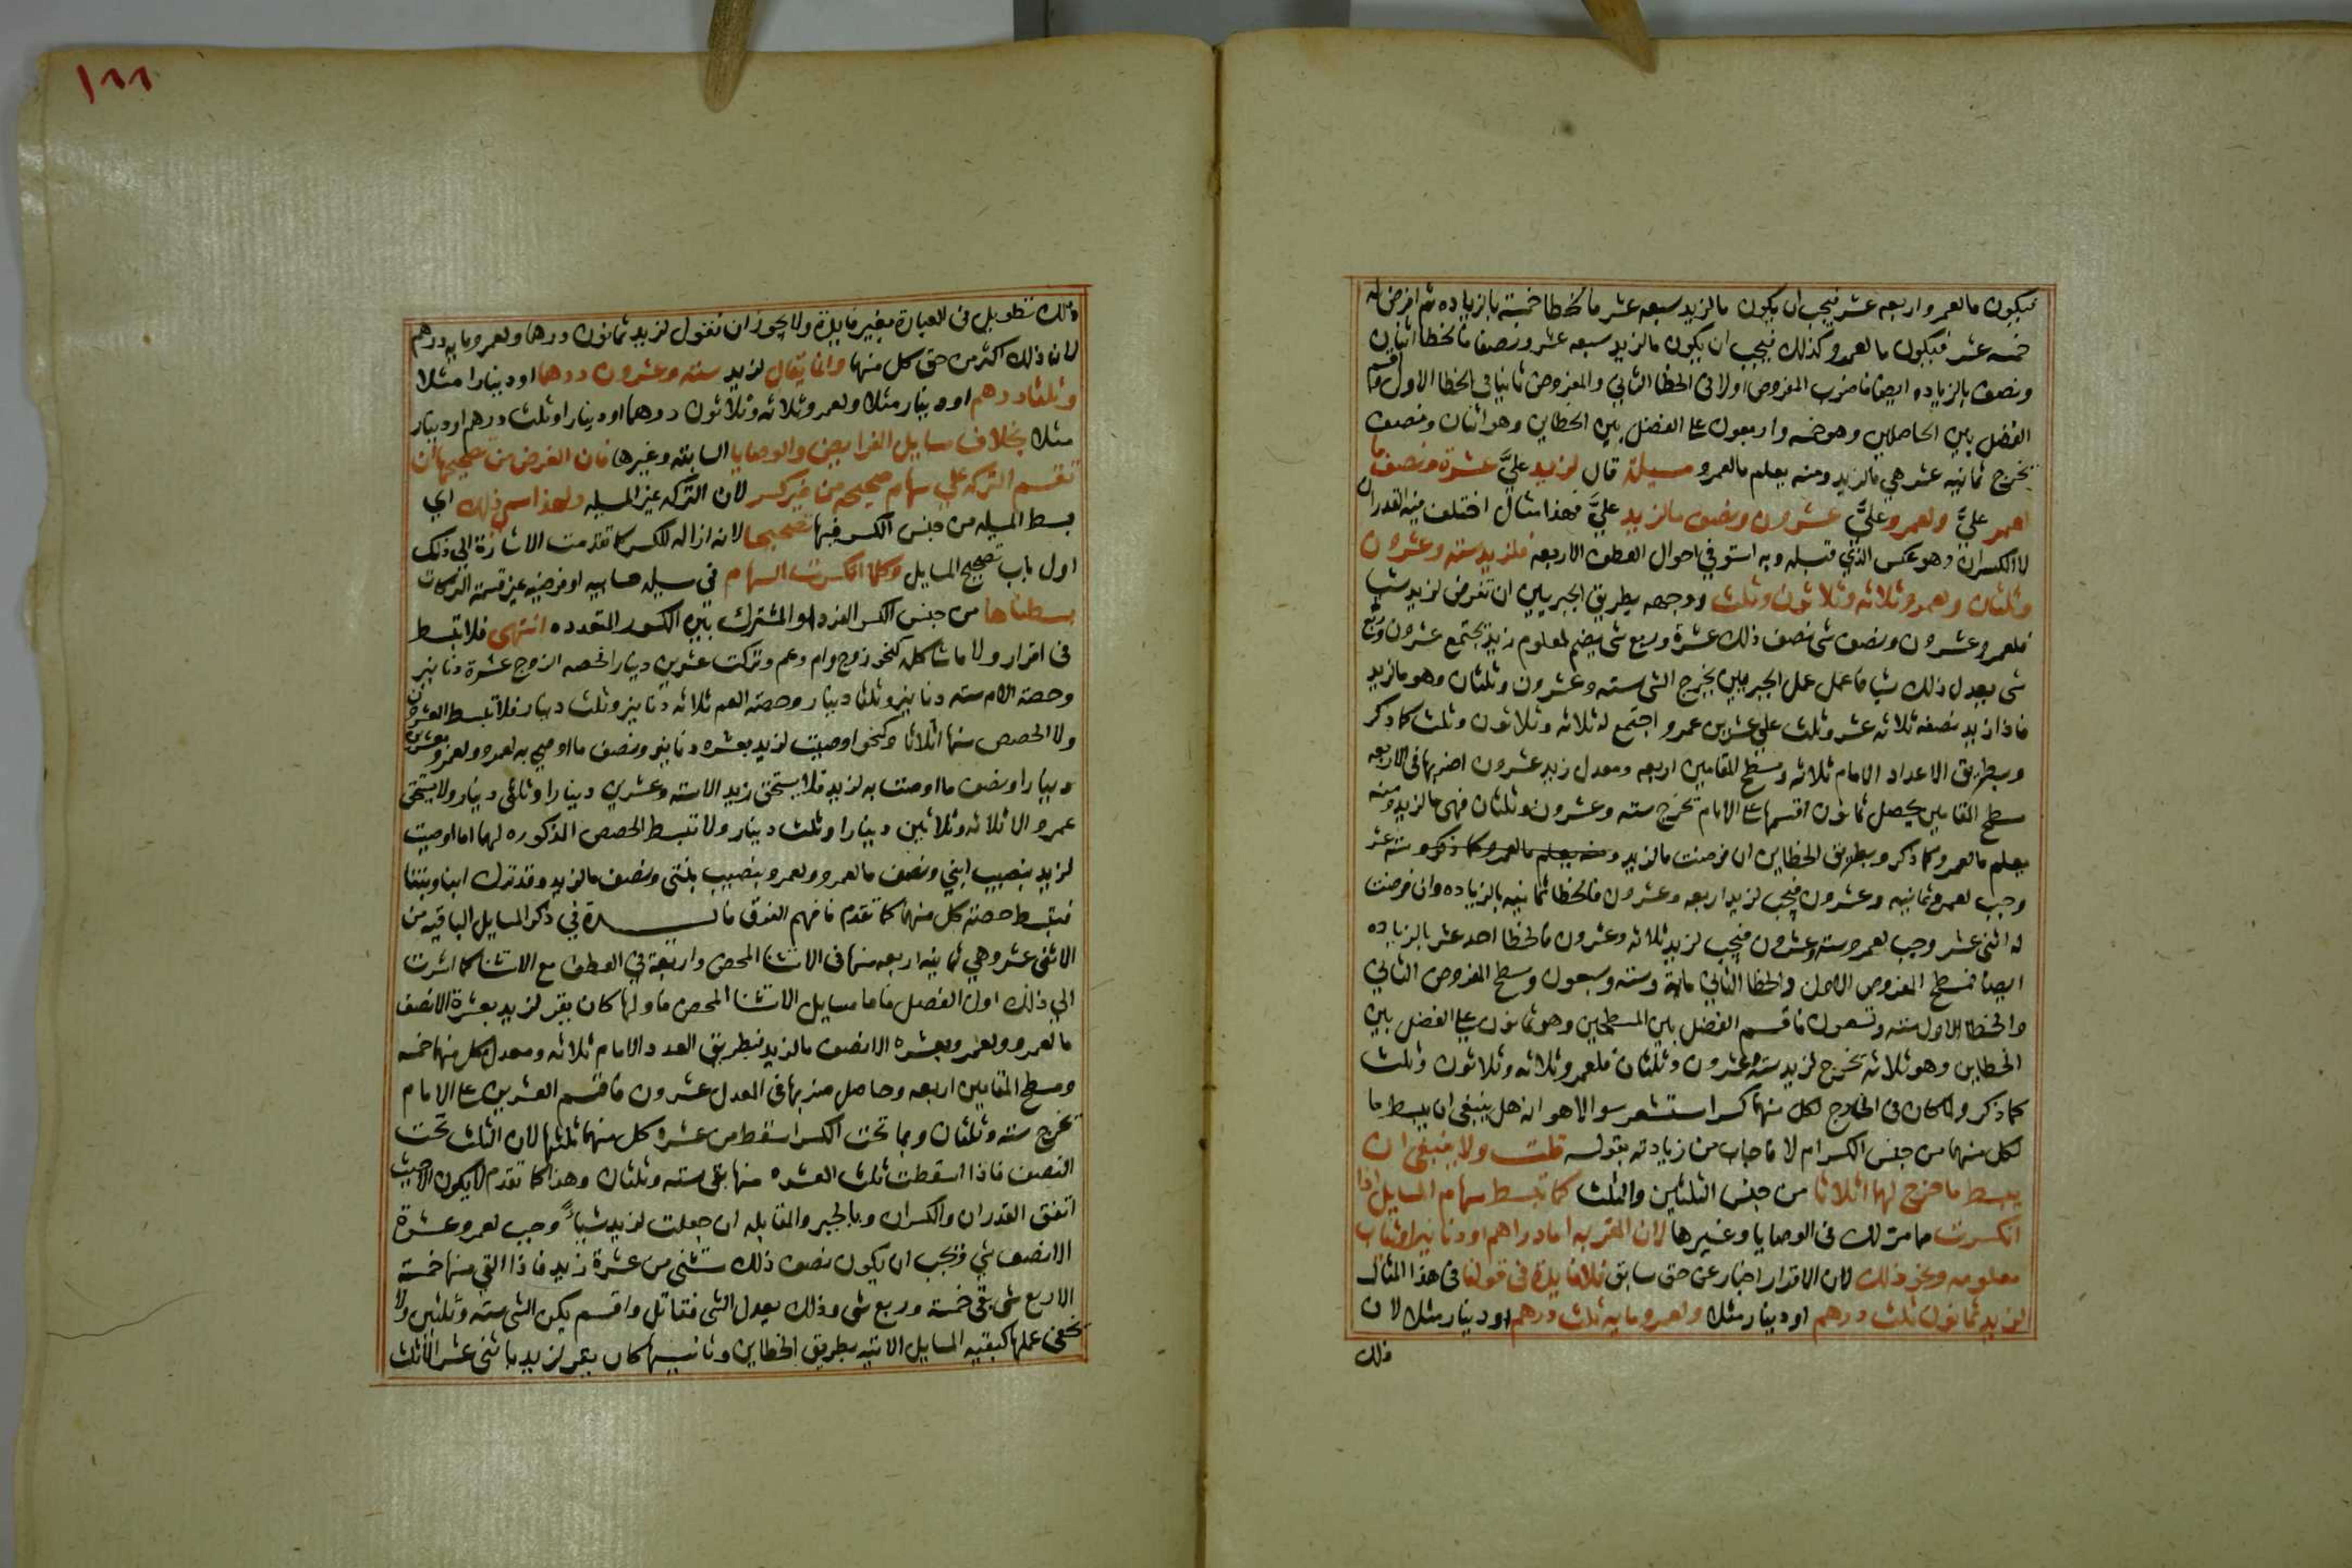 فيكون ما لعمرو اربعه عشر فيجب ان يكون ما لزيد سبعه عشر فالخطا خمسة بالزياده ثم افرض له
خمسه عشر فيكون ما لعمرو كذلك فيجب ان يكون ما لزيد سبعه عشر ونصف فالخطا اثنان
ونصف بالزياده ايضا فاضرب المفروض اولا في الخطا الثاني والمفروض ثانيا في الخطا الاول واقسم
الفضل بين الحاصلين وهو خمسه واربعون على الفضل بين الخطاين وهو اثنان ونصف
تخرج ثمانيه عشر هي ما لزيد ومنه يعلم ما لعمرو مسيلة قال لزيد عليَّ عشرة ونصف ما
لعمر عليَّ ولعمرو عليَّ عشرون ونصف ما لزيد عليَّ فهذا مثال اختلف فيه القدران
لا الكسران وهو عكس الذي قبله وبه استوفي احوال العطف الاربعه فلزيد سته وعشرون
وثلثان ولعمرو ثلاثه وثلاثون وثلث ووجهه بطريق الجبريين ان تفرض لزيد شيا
فلعمرو عشرون ونصف شي نصف ذلك عشرة وربع شي يضم لمعلوم زيد يجتمع عشرون وربع
شي يعدل ذلك شيا فاعمل عمل الجبريين يخرج الشي سته وعشرون وثلثان وهو ما لزيد
فاذا زيد نصفه ثلاثه عشر وثلث علي عشرين عمرو اجتمع له ثلاثه وثلاثون وثلث كما ذكر
وبطريق الاعداد الامام ثلاثه ومسطح المقامين اربعه ومعدل زيد عشرون اضربها في الاربعه
مسطح المقامين يحصل ثمانون اقسمها على الامام تخرج سته وعشرون وثلثان فهي ما لزيد ومنه
يعلم ما لعمرو كما ذكر وبطريق الخطاين ان فرضت ما لزيد ومنه يعلم ما لعمرو كما ذكر وسته عشر
وجب لعمرو ثمانيه وعشرون فيجب لزيد اربعه وعشرون فالخطا ثمانيه بالزياده وان فرضت
له اثني عشر وجب لعمرو سته وعشرون فيجب لزيد ثلاثه وعشرون فالخطا احد عشر بالزياده
ايضا فمسطح المفروض الاول والخطا الثاني مائة وسته وسبعون ومسطح المفروض الثاني
والخطا الاول سته وتسعون فاقسم الفضل بين المسطحين وهو ثمانون علي الفضل بين
الخطاين وهو ثلاثه تخرج لزيد سته وعشرون وثلثان فلعمرو ثلاثه وثلاثون وثلث
كما ذكر ولما كان في الخارج لكل منهما كسر استشعر سوالا هو انه هل ينبغي ان يبسط ما
لكل منهما من جنس الكسر ام لا فاجاب من زيادته بقوله قلت ولا ينبغي ان
يبسط ما خرج لهما اثلاثا من جنس الثلثين والثلث كما تبسط سهام المسايل اذا
انكسرت مما مر لك في الوصايا وغيرها لان المقر به اما دراهم او دنانير او ثياب
معلومه ونحو ذلك لان الاقرار اخبار عن حق سابق فلا فايدة في قولنا في هذا المثال
لزيد ثمانون ثلث درهم او دينار مثلا ولعمرو مايه ثلث درهم او دينار مثلا لان
ذلك
١٨٨
ذلك تطويل في العبارة بغير فايدة ولا يجوز ان نقول لزيد ثمانون درهما ولعمرو مايه درهم
لان ذلك اكثر من حق كل منهما وانما يقال لزيد سته وعشرون درهما او دينارا مثلا
وثلثا درهم او دينار مثلا ولعمرو ثلاثه وثلاثون درهما او دينارا وثلث درهم او دينار
مثلا بخلاف مسايل الفرايض والوصايا السابقه وغيرها فان الغرض من تصحيحها ان
تقسم التركه علي سهام صحيحه من غير كسر لان التركه غير المسيله ولهذا سمي ذلك اي
بسط المسيله من جنس الكسر فيها تصحيحا لانه ازاله للكسر كما تقدمت الاشارة الي ذلك
اول باب تصحيح المسايل وكلما انكسرت السهام في مسيله حسابيه او فرضيه غير قسمة التركات
بسطناها من جنس الكسر المفرد او المشترك بين الكسور المتعدده انتهى فلا تبسط
في اقرار ولا ما شاكله كنحو زوج وام وعم وتركت عشرين دينارا فحصه الزوج عشرة دنانير
وحصة الام سته دنانير وثلثا دينار وحصة العم ثلاثه دنانير وثلث دينار فلا تبسط العشرون
ولا الحصص منها اثلاثا وكنحو اوصيت لزيد بعشره دنانير ونصف ما اوصي به لعمرو ولعمرو بعشرين
دينارا ونصف ما اوصت به لزيد فلا يستحق زيد الا سته وعشرين دينارا وثلثي دينار ولا يستحق
عمرو الا ثلاثه وثلاثين دينارا وثلث دينار ولا تبسط الحصص المذكوره لهما اما اوصيت
لزيد بنصيب ابني ونصف ما لعمرو ولعمرو بنصيب بنتي ونصف ما لزيد وقد ترك ابنا وبنتا
فتبسط حصة كل منهما كما تقدم فافهم الفرق في ذكر المسايل الباقيه من
الاثني عشر وهي ثمانيه اربعه منها في الاستثنا المحض واربعة في العطف مع الاستثنا كما اشرت
الي ذلك اول الفصل فاما مسايل الاستثنا المحض فاولها كان يقر لزيد بعشرة الا نصف
ما لعمرو ولعمرو بعشره الا نصف ما لزيد فبطريق العدد الامام ثلاثه ومعدل كل منهما خمسه
ومسطح المقامين اربعه وحاصل ضربها في المعدل عشرون فاقسم العشرين على الامام
تخرج سته وثلثان وبما تحت الكسر اسقط من عشرة كل منهما ثلثها لان الثلث تحت
النصف فاذا اسقطت ثلث العشره منها بقي سته وثلثان وهذا كما تقدم لا يكون الا حيث
اتفق القدران والكسران وبالجبر والمقابله ان جعلت لزيد شيئاً وجب لعمرو عشرة
الا نصف شي فيجب ان يكون نصف ذلك مستثنى من عشرة زيد فاذا القي منها خمسة
الا ربع شي بقي خمسة وربع شي وذلك يعدل الشي فقابل واقسم يكن الشي سته وثلثين ولا
يخفى عملها كبقيه المسايل الاتيه بطريق الخطاين وثانيها كان يقر لزيد باثني عشر الا ثلث